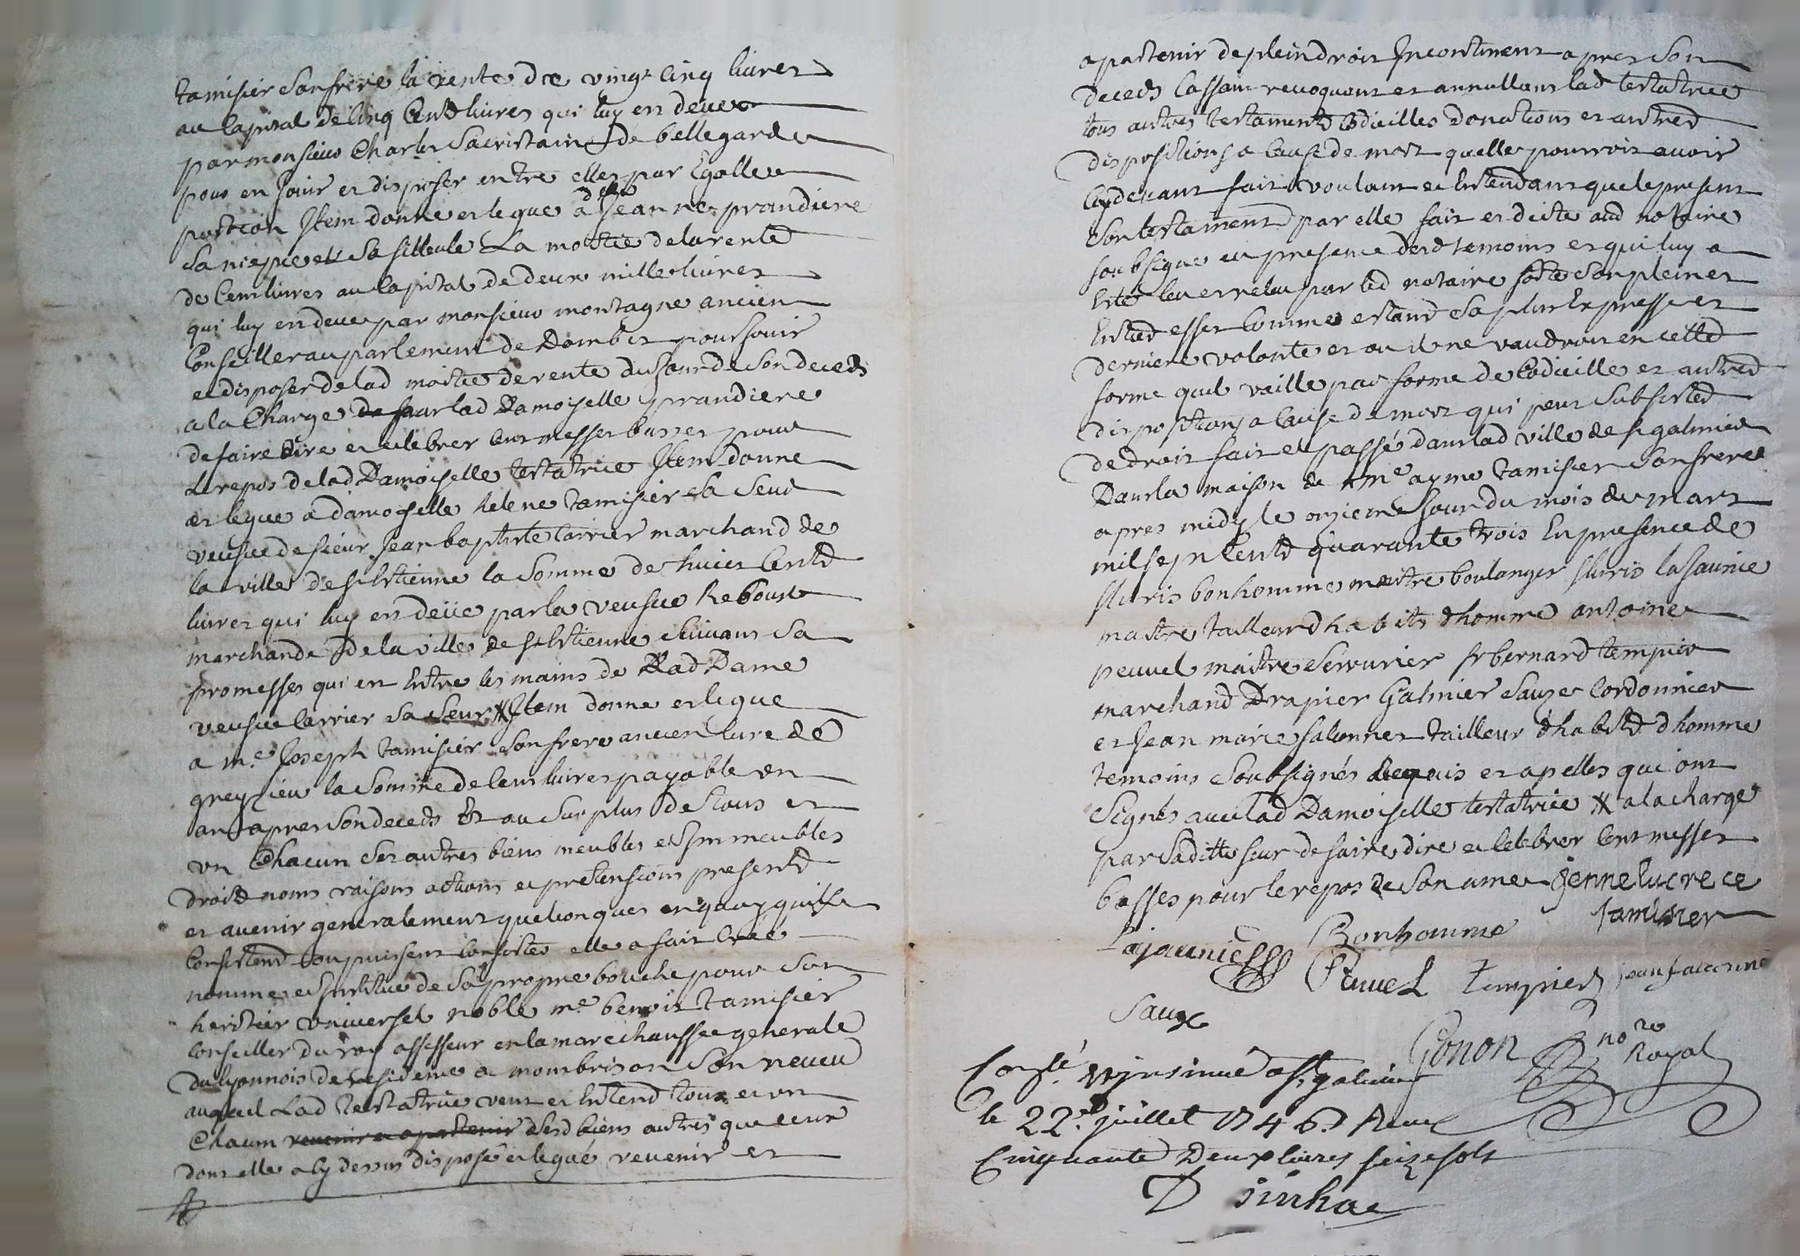 tamisier son frere la rente de vingt cinq livres
au Capital de Cinq Centz livres qui luy en deüe
par monsieur Charles Sacristain de bellegarde
pour en jouir et disposer entre elles par Egalle
portion Item donne et legue a dlle Jeanne prandiere
sa niepce et sa filleule La moitie de la rente
de Cent livres au Capital de deux mille livres
qui luy en deue par monsieur montagne ancien
Conseiller au parlement de Dombes pour jouir
et disposer de lad moitie de rente du Jour de son deceds
a la Charge de faire lad Damoiselle prandiere
de faire dire et celebrer cent messes basses pour
Le repos de lad Damoiselle testatrice Item donne
et legue a damoiselle helene tamisier sa seur
veufve de sieur Jean baptiste Carrier marchand de
la ville de st Estienne la somme de huict Centz
livres qui luy en deüe par la veufve Reboust
marchande de la ville de st Estienne suivant sa
promesse qui en Entre les mains de Lad Dame
veufve Carrier sa seur # Item donne et legue
a me Joseph tamisier son frere ancien Curé de
greyzieu la somme de Cent livres payable un
an apres son deceds Et au surplus de tous et
un Chacun ses autres biens meubles et Immeubles
droitz noms raisons actions et pretensions presentz
et avenir generalement quelconques en quoy qu'ils
Consistent ou puissent Consister elle a fait Crée
nomme et Institue de sa propre bouche pour son
heritier universel noble me benoit tamisier
Conseiller du roy assesseur en la marechaussee generale
du lyonnois de residence a montbrison son neveu
auquel Lad testatrice veut et Entend tous et un
Chacun revenir et apartenir sesd biens autres que ceux
dont elle a cy dessus disposé et legué revenir et
apartenir de plein droit Incontinent apres son
deceds Cassant revoquant et annullant lad testatrice
tous autres testaments Codicilles donations et autres
dispositions a Cause de mort quelle pourroit avoir
Cy devant fait voulant et Entendant que le present
son testament par elle fait et dicte aud notaire
soubsigne en presence desd temoins et qui luy a
Esté leu et releu par led notaire sorte son plein et
Entier effet Comme estant sa plus Expresse et
derniere volonte et ou il ne vaudroit en cette
forme quil vaille par forme de Codicille et autres
dispositions a Cause de mort qui peut subsister
de droit fait et passé dans lad ville de st galmier
Dans la maison de me ayme tamisier son frere
apres midy le onzieme Jour du mois de mars
mil sept Centz quarante trois En presence de
sieurs bonhomme maitre boulanger lasaunie
maitre tailleur d'habits d'homme antoine
peuvel maitre serrurier sr bernard tempier
marchand Drapier Galmier sauze Cordonnier
et Jean marie falconnet tailleur d'habits d'homme
temoins soubsignés requis et apelles qui ont
signés avec lad Damoiselle testatrice # a la charge
par saditte seur de faire dire et celebrer Cent messes
basses pour le repos de son ame Jenne lucrece
tamisier
Bonhomme
Peuvel Tempier
Sauze
Gonon nore Royal
Conlé et insinué a st galmier
le 22e juillet 1746 Receu
Cinquante Deux livres seize sols